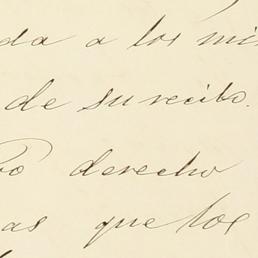 da a los mi
de su recibo.
o derecho
as que los